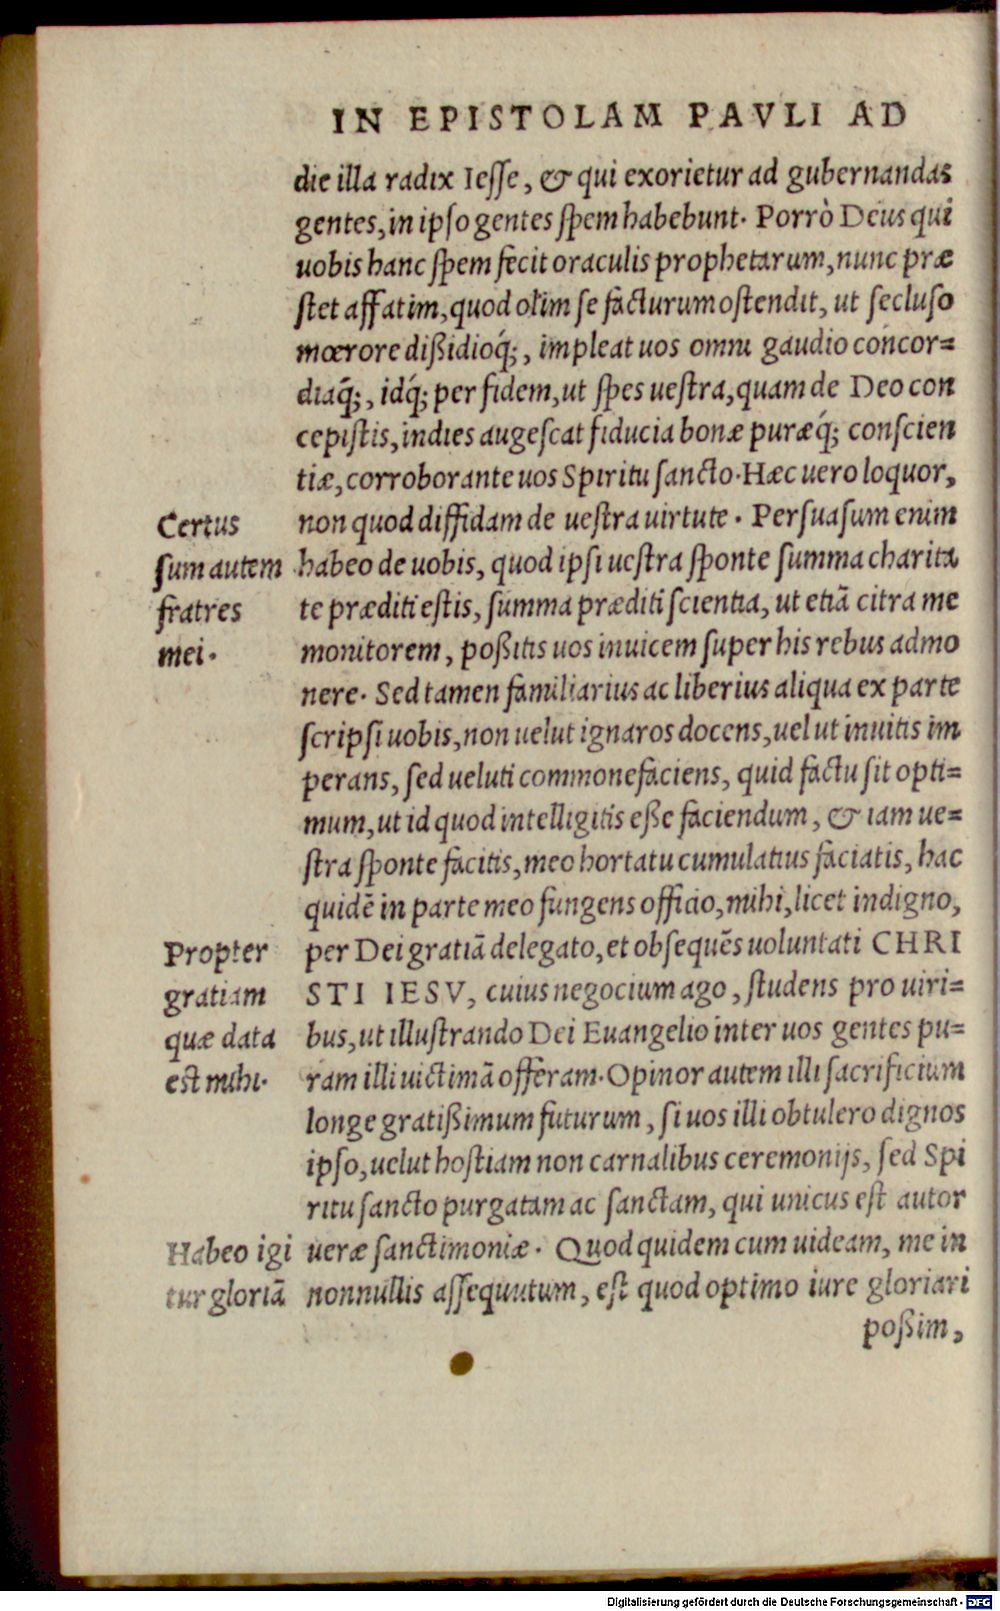 IN EPISTOLAM PAVLI AD
die illa radix Iesse, & qui exorietur ad gubernandas
gentes, in ipso gentes spem habebunt. Porrò Deus qui
uobis hanc spem fecit oraculis prophetarum, nunc præ
stet affatim, quod olim se facturum ostendit, ut secluso
mœrore dißidioq́;, impleat uos omni gaudio concor=
diaq́;, idq́; per fidem, ut spes uestra, quam de Deo con
cepistis, indies augescat fiducia bonæ puræq́; conscien
tiæ, corroborante uos Spiritu sancto. Hæc uero loquor,
non quod diffidam de uestra uirtute. Persuasum enim
habeo de uobis, quod ipsi uestra sponte summa charita
te præditi estis, summa præditi scientia, ut etiã citra me
monitorem, poßitis uos inuicem super his rebus admo
nere. Sed tamen familiarius ac liberius aliqua ex parte
scripsi uobis, non uelut ignaros docens, uel ut inuitis im
perans, sed ueluti commonefaciens, quid factu sit opti=
mum, ut id quod intelligitis eße faciendum, & iam ue=
stra sponte facitis, meo hortatu cumulatius faciatis, hac
quidẽ in parte meo fungens officio, mihi, licet indigno,
per Dei gratiã delegato, et obsequẽs uoluntati CHRI
STI IESV, cuius negocium ago, studens pro uiri=
bus, ut illustrando Dei Euangelio inter uos gentes pu=
ram illi uictimã offeram. Opinor autem illi sacrificium
longe gratißimum futurum, si uos illi obtulero dignos
ipso, uelut hostiam non carnalibus ceremonijs, sed Spi
ritu sancto purgatam ac sanctam, qui unicus est autor
ueræ sanctimoniæ. Quod quidem cum uideam, me in
nonnullis assequutum, est quod optimo iure gloriari
poßim,
Certus
sum autem
fratres
mei.
Propter
gratiam
quæ data
est mihi.
Habeo igi
tur gloriã
Digitalisierung gefördert durch die Deutsche Forschungsgemeinschaft - DFG